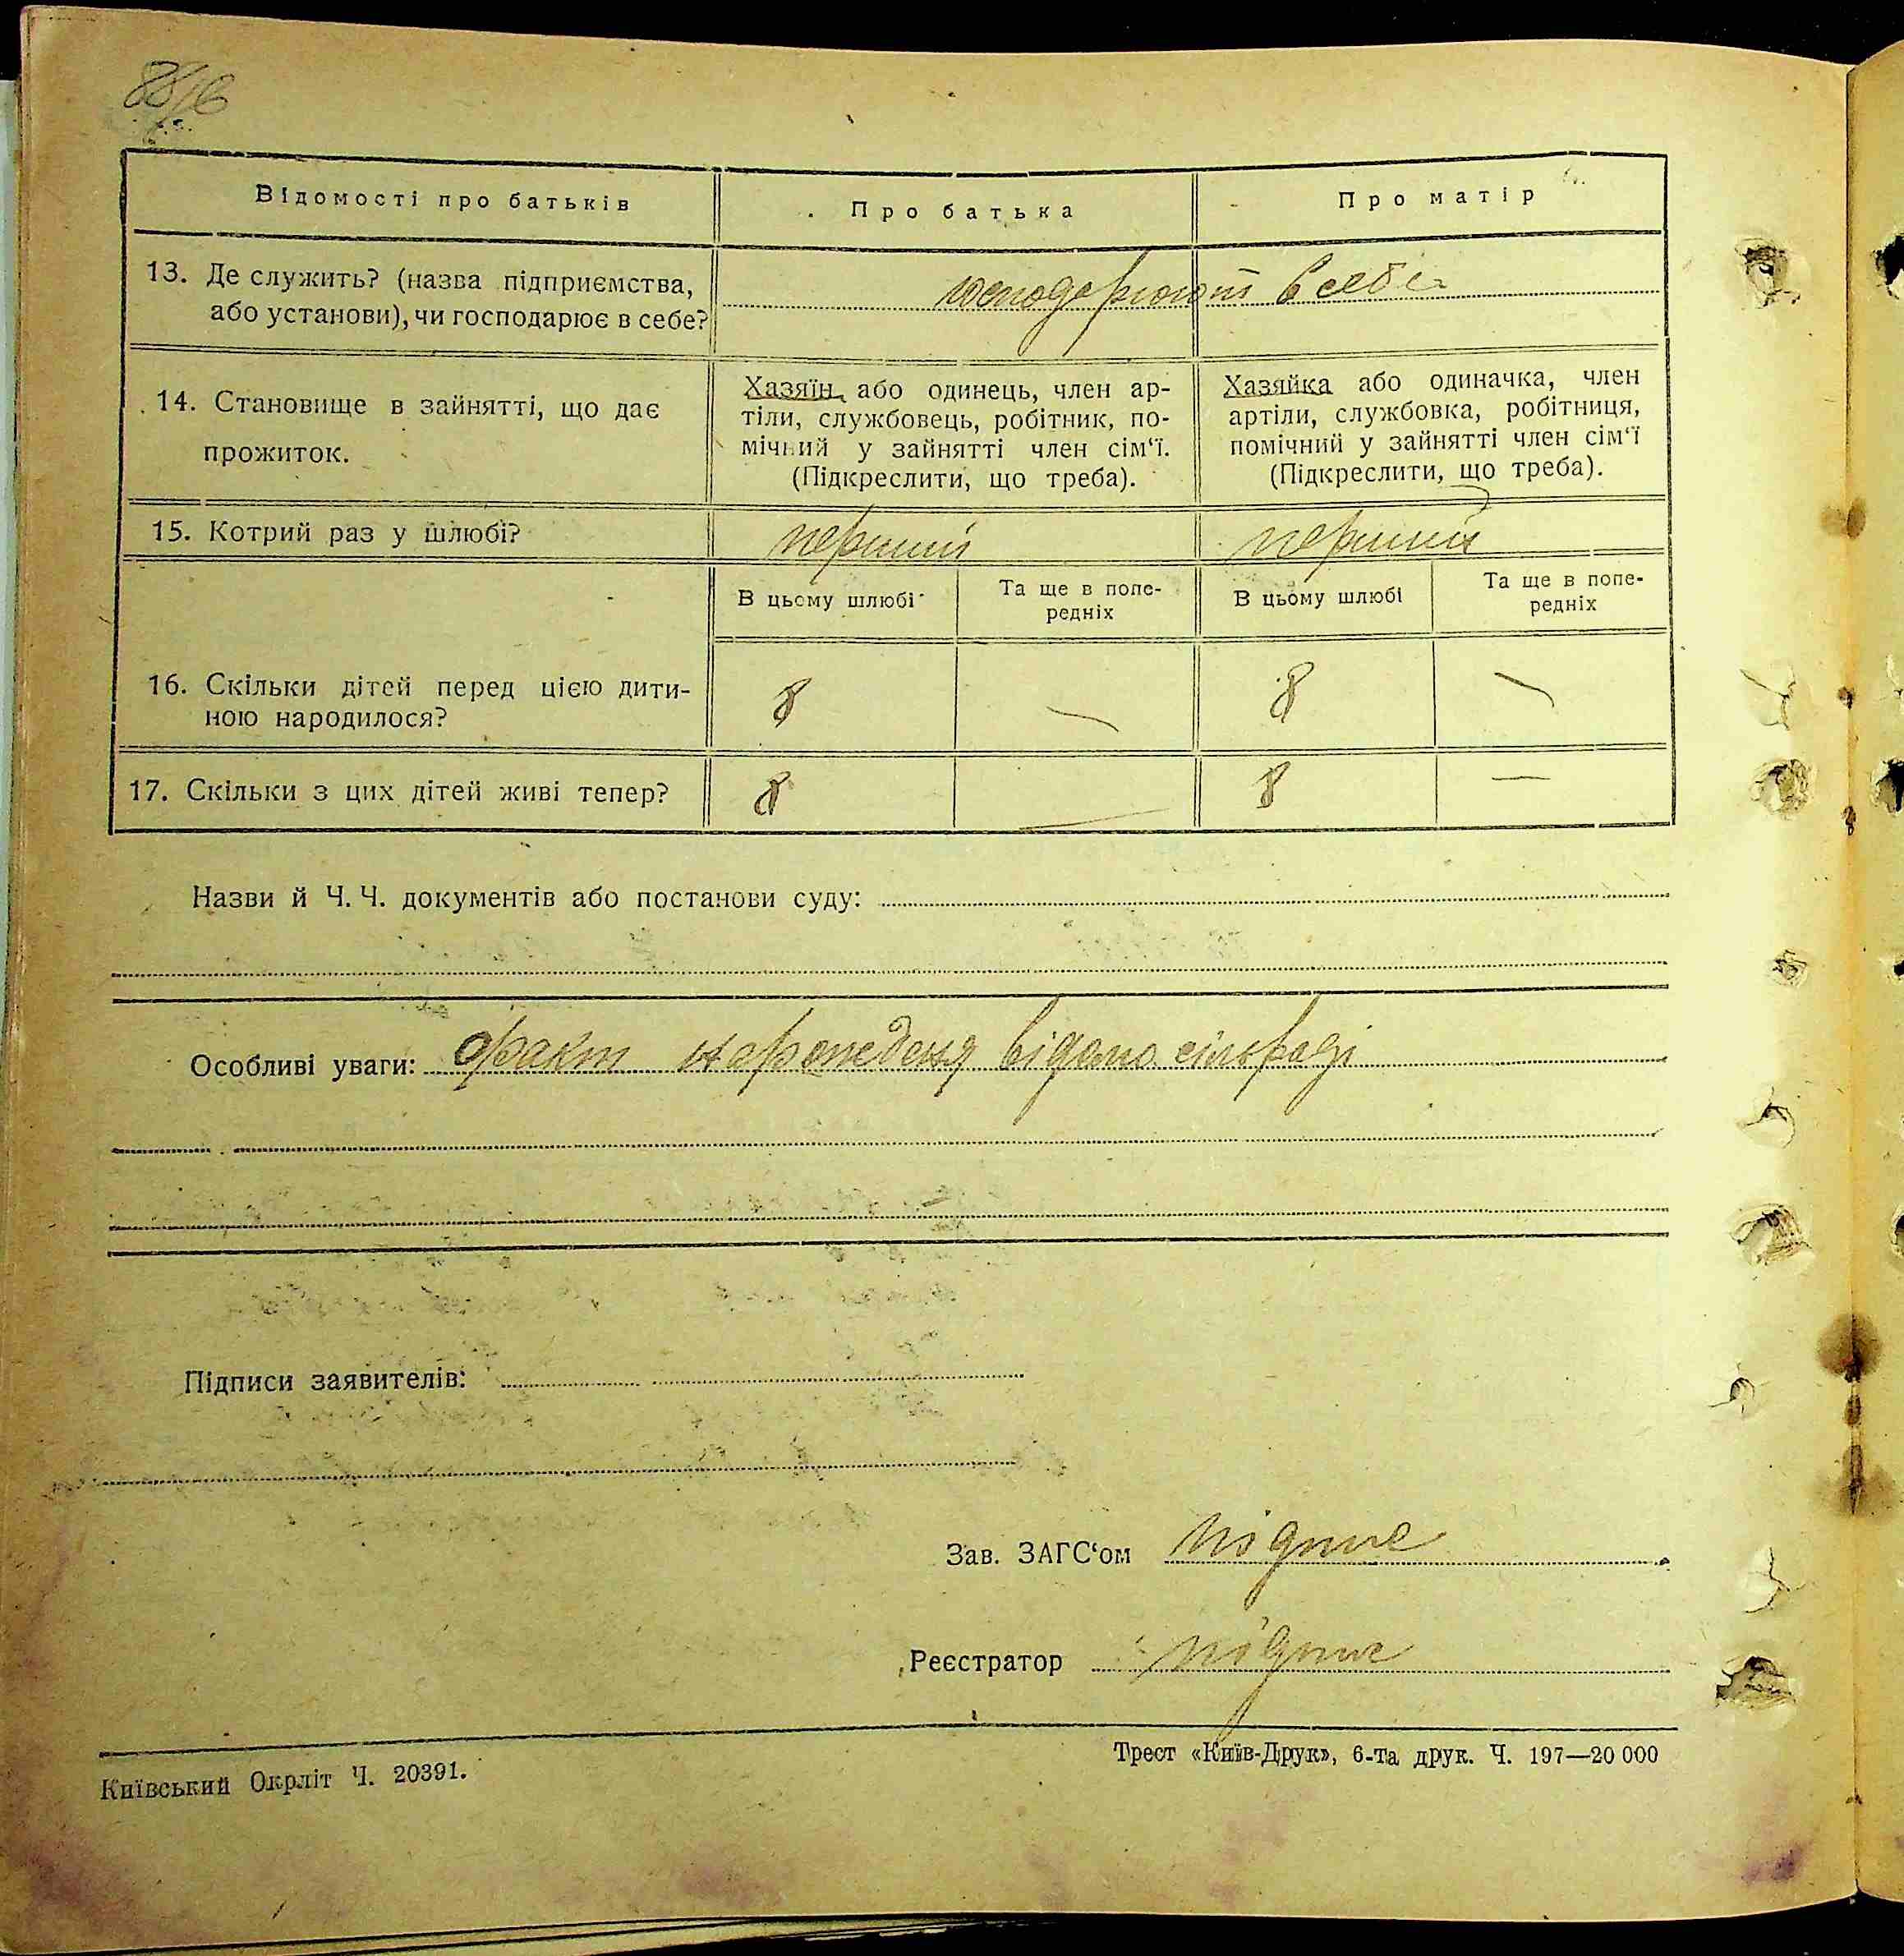 Відомості про батьків
Про батька
Про матір
13. Де служить? (назва підприємства,
або установи), чи господарює в себе?
господарюют в себе
14. Становище в зайнятті, що дає
прожиток.
Хазяїн, або одинець, член ар-
тіли, службовець, робітник, по-
мічний у зайнятті член сім‘ї.
(Підкреслити, що треба).
Хазяйка або одиначка, член
артіли, службовка, робітниця,
помічний у зайнятті член сім‘ї
(Підкреслити, що треба).
15. Котрий раз у шлюбі?
перший
перший
В цьому шлюбі
Та ще в попе-
редніх
В цьому шлюбі
Та ще в попе-
редніх
16. Скільки дітей перед цією дити-
ною народилося?
8
—
8
—
17. Скільки з цих дітей живі тепер?
8
—
8
—
Назви й Ч. Ч. документів або постанови суду:
Особливі уваги: факт народження відомо сільраді
Підписи заявителів:
Зав. ЗАГС‘ом підпис
Реєстратор підпис
Київський Окрліт Ч. 20391.
Трест «Київ-Друк», 6-та друк. Ч. 197—20 000